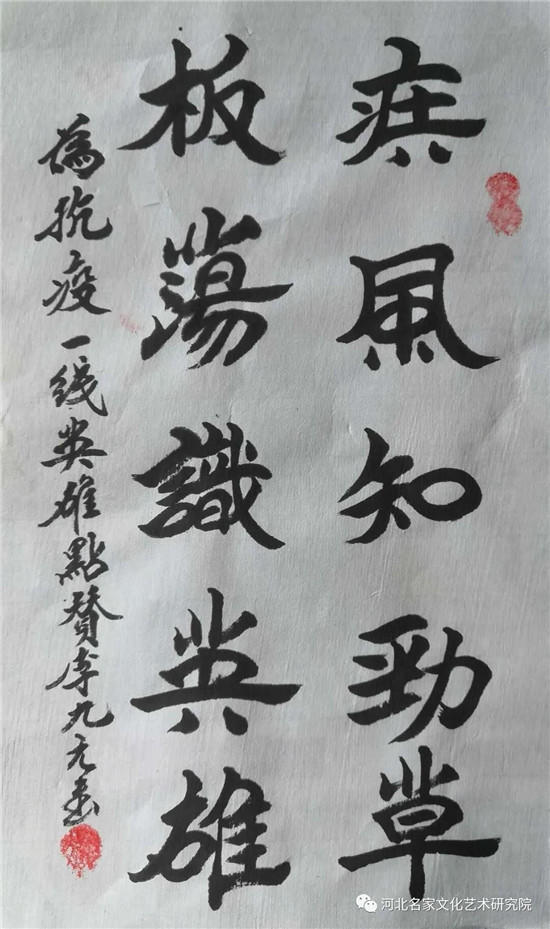 疾風知勁草
板蕩識英雄
為抗疫一线英雄點赞李九元书
河北名家文化艺术研究院